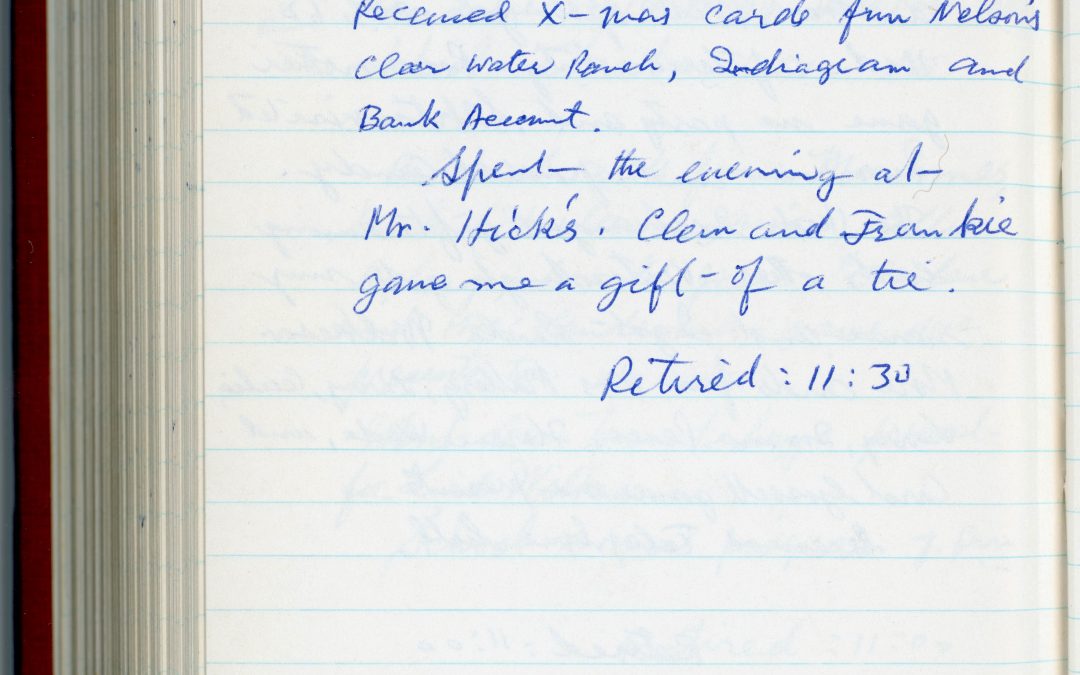 Received X-mas cards from Nelson's
Clear Water Ranch, and
Bank Account.
Spent the evening at
Mr. Hick's. Clem and Frankie
gave me a gift of a tie.
Retired: 11:30